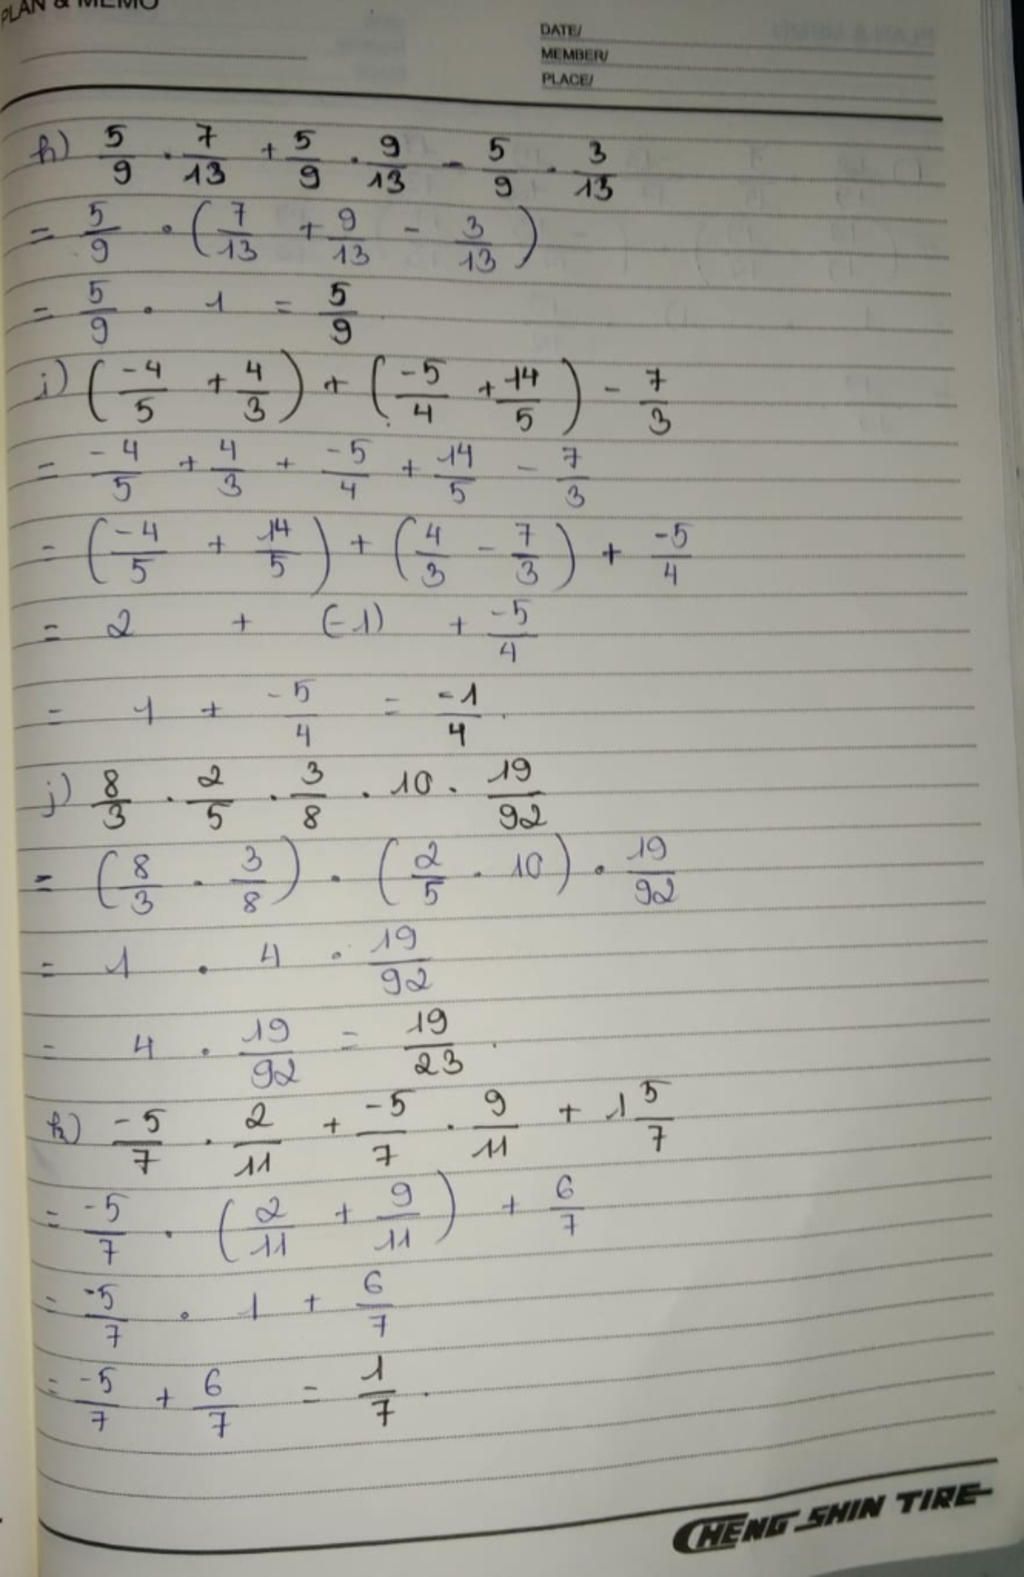 PLAN & MEMO
DATE/
MEMBER/
PLACE/
h) 5/9 . 7/13 + 5/9 . 9/13 - 5/9 . 3/13
= 5/9 . (7/13 + 9/13 - 3/13)
= 5/9 . 1 = 5/9
i) (-4/5 + 4/3) + (-5/4 + 14/5) - 7/3
= -4/5 + 4/3 + -5/4 + 14/5 - 7/3
= (-4/5 + 14/5) + (4/3 - 7/3) + -5/4
= 2 + (-1) + -5/4
= 1 + -5/4 = -1/4.
j) 8/3 . 2/5 . 3/8 . 10 . 19/92
= (8/3 . 3/8) . (2/5 . 10) . 19/92
= 1 . 4 . 19/92
= 4 . 19/92 = 19/23.
k) -5/7 . 2/11 + -5/7 . 9/11 + 1 5/7
= -5/7 . (2/11 + 9/11) + 6/7
= -5/7 . 1 + 6/7
= -5/7 + 6/7 = 1/7.
CHENG SHIN TIRE